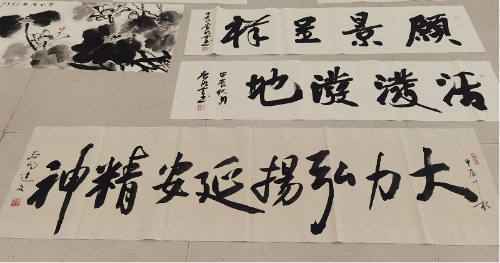 願景呈祥
甲辰
活潑潑地
甲辰秋月
大力弘揚延安精神